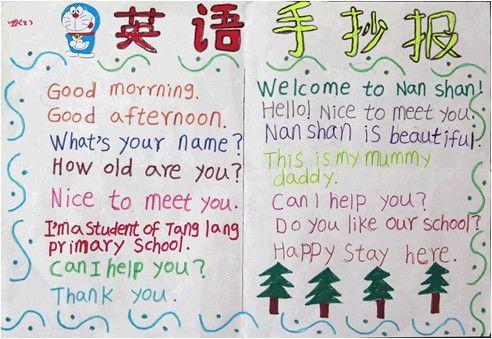 英语手抄报
Good morrning.
Good afternoon.
What's your name?
How old are you?
Nice to meet you.
I'm a student of Tang lang
primary School.
Can I help you?
Thank you.
Welcome to Nan shan!
Hello! Nice to meet you.
Nan shan is beautiful.
This is my mummy
daddy.
Can I help you?
Do you like our school?
Happy Stay here.